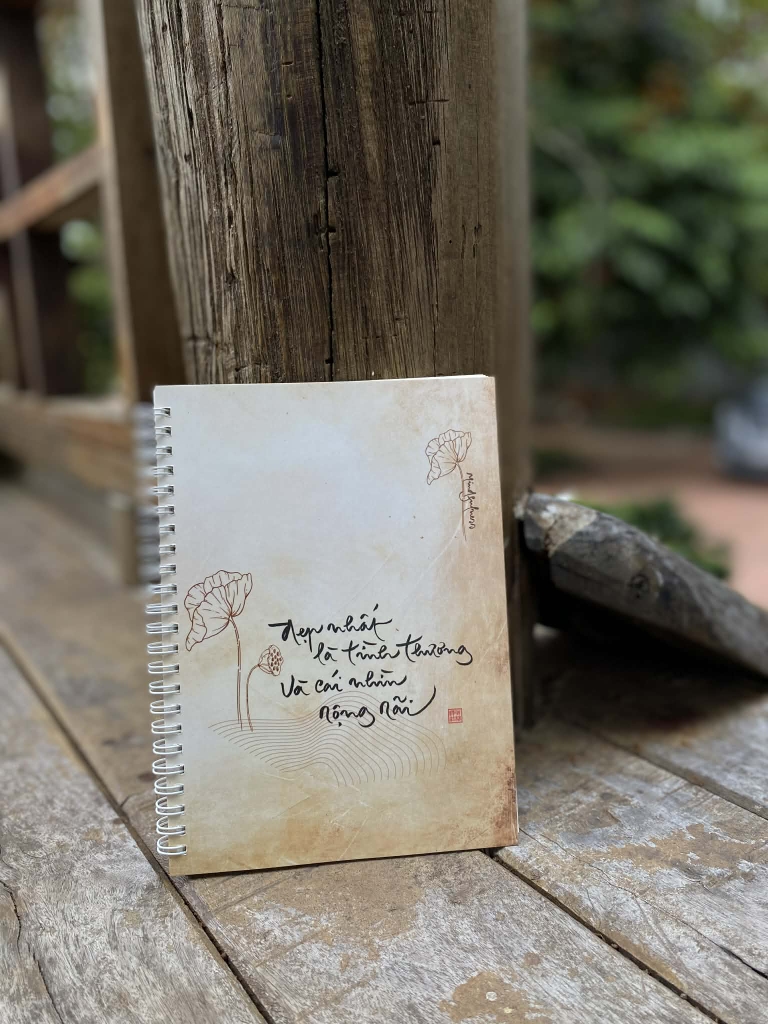 Mindfulness
đẹp nhất
là tình thương
và cái nhìn
rộng rãi